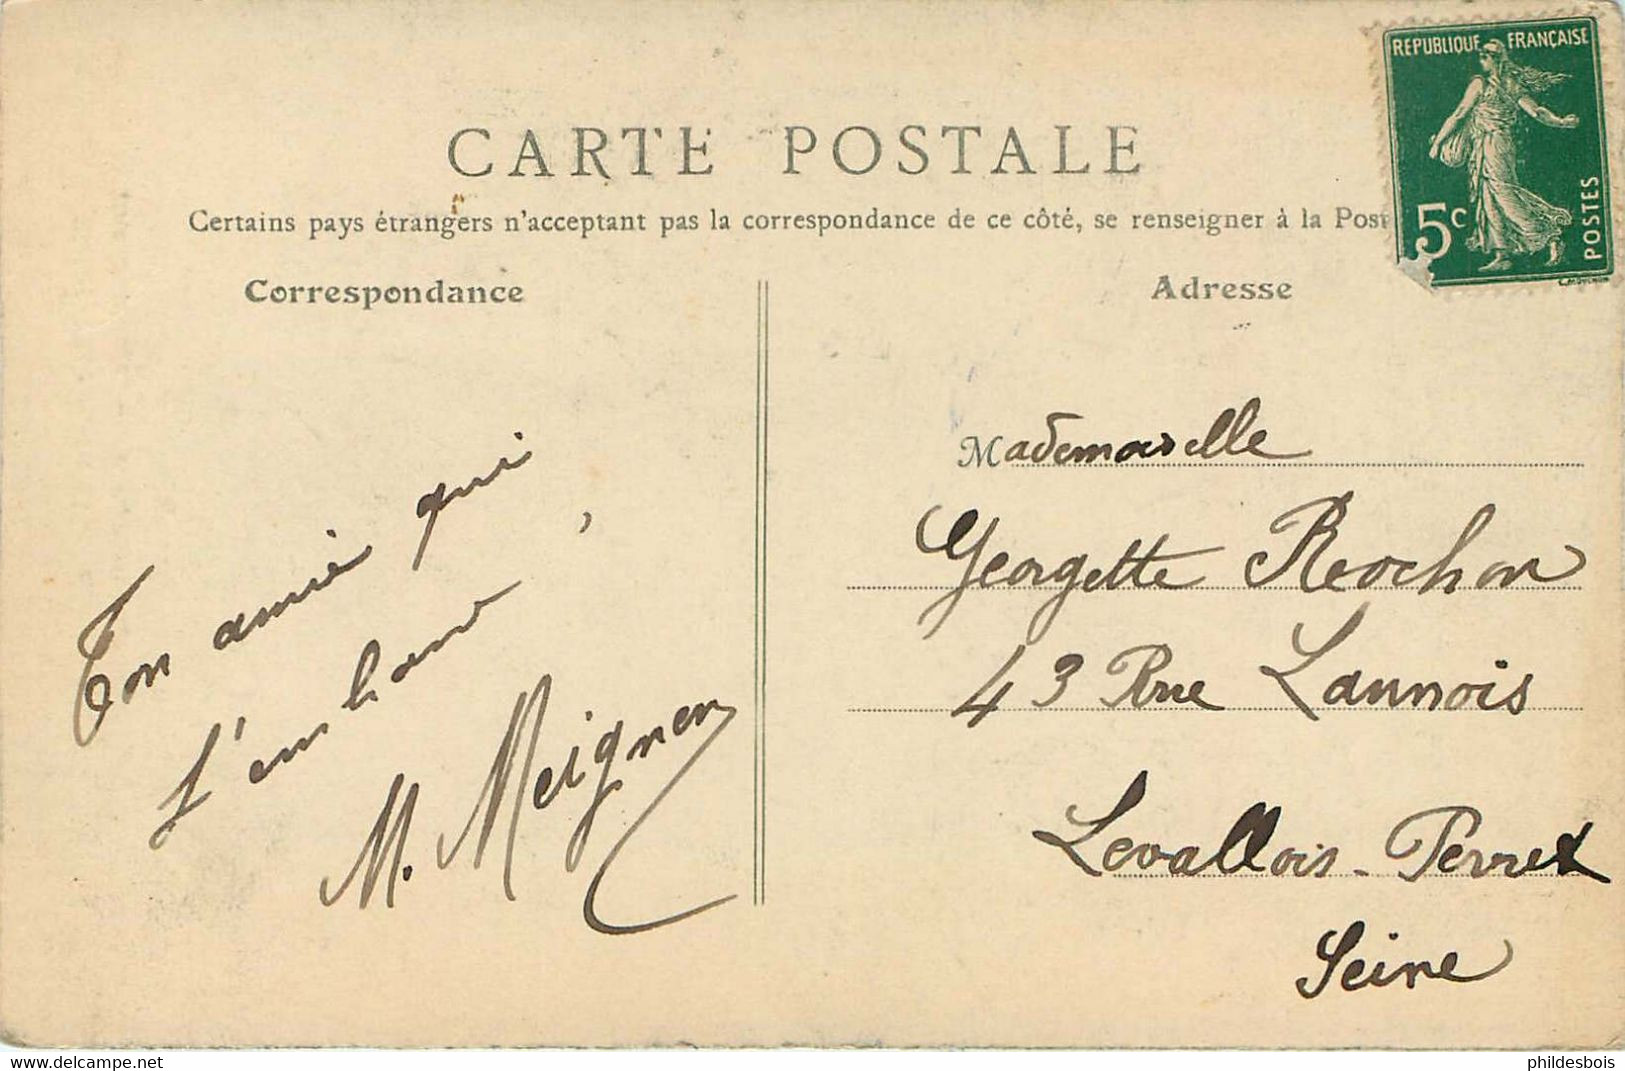 CARTE POSTALE
Certains pays étrangers n'acceptant pas la correspondance de ce côté, se renseigner à la Post
Correspondance
Adresse
REPUBLIQUE FRANÇAISE
5c
POSTES
Ton amie qui
t'em
M. Meignen
Mademoiselle
Georgette Rochon
43 Rue Lannois
Levallois-Perret
Seine
www.delcampe.net
phildesbois